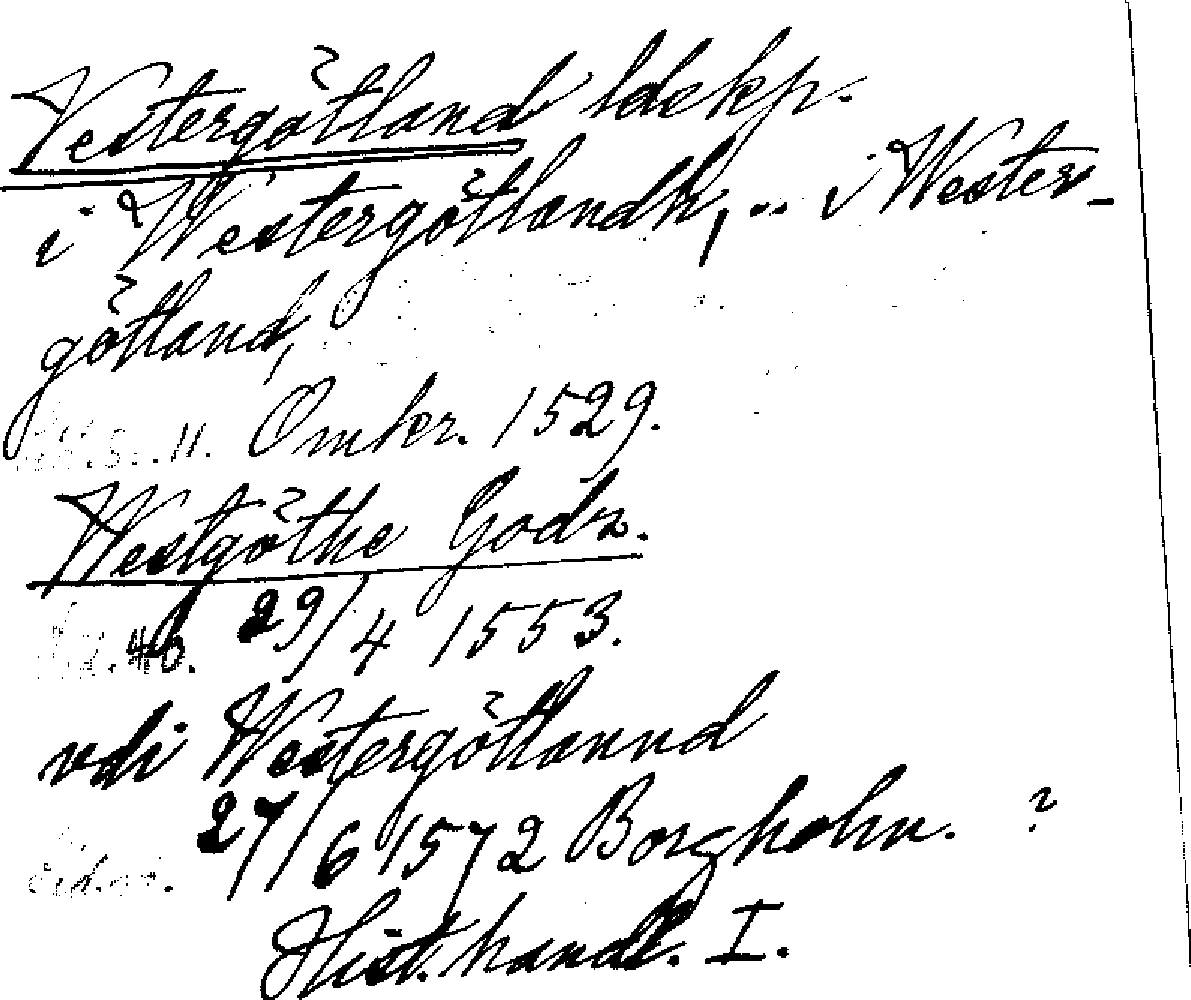 Vestergötland ldskp.
i Westergötlandh, .. i Wester-
götland,
s. 11. Omkr. 1529.
Westgöthe Godz.
40. 29/4 1553.
vdi Westergötlannd
sid. 27/6 1572 Borgholm. ?
Hist. handl. I.